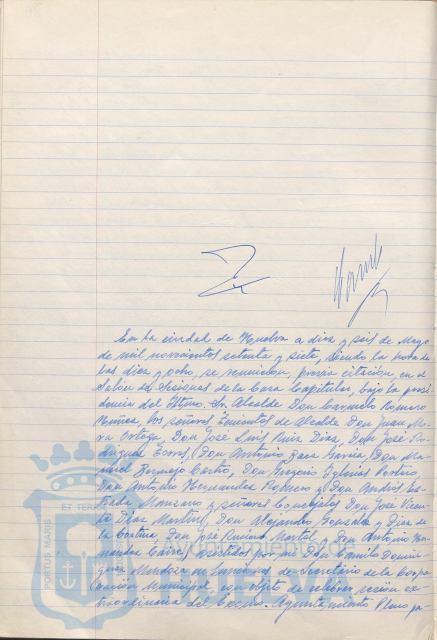 En la ciudad de Huelva a diez y seis de Mayo
de mil novecientos setenta y siete, siendo la hora de
las diez y ocho, se reunieron, previa citación, en el
Salón de Sesiones de la Casa Capitular, bajo la presi
dencia del Iltmo. Sr. Alcalde Don Carmelo Romero
los señores Tenientes de Alcalde Don Juan Mo
ra Ortega, Don José Luis Ruiz Díaz, Don José Ro
dríguez Don Antonio García, Don Ma
nuel Bermejo Don Iglesias
Don Antonio Hernández y Don Andrés Es
trada Manzano y señores Concejales Don José Vicen
te Díaz Martín, Don Alejandro González y Díaz de
la Don José Martel y Don Antonio Fer
nández asistidos por mí Don Camilo Domín
guez Mendoza en funciones de Secretario de la Corpo
ración Municipal, con objeto de celebrar sesión ex
traordinaria del Excmo. Ayuntamiento Pleno pa
PORTUS MARIS
ET TERRAE
HUELVA